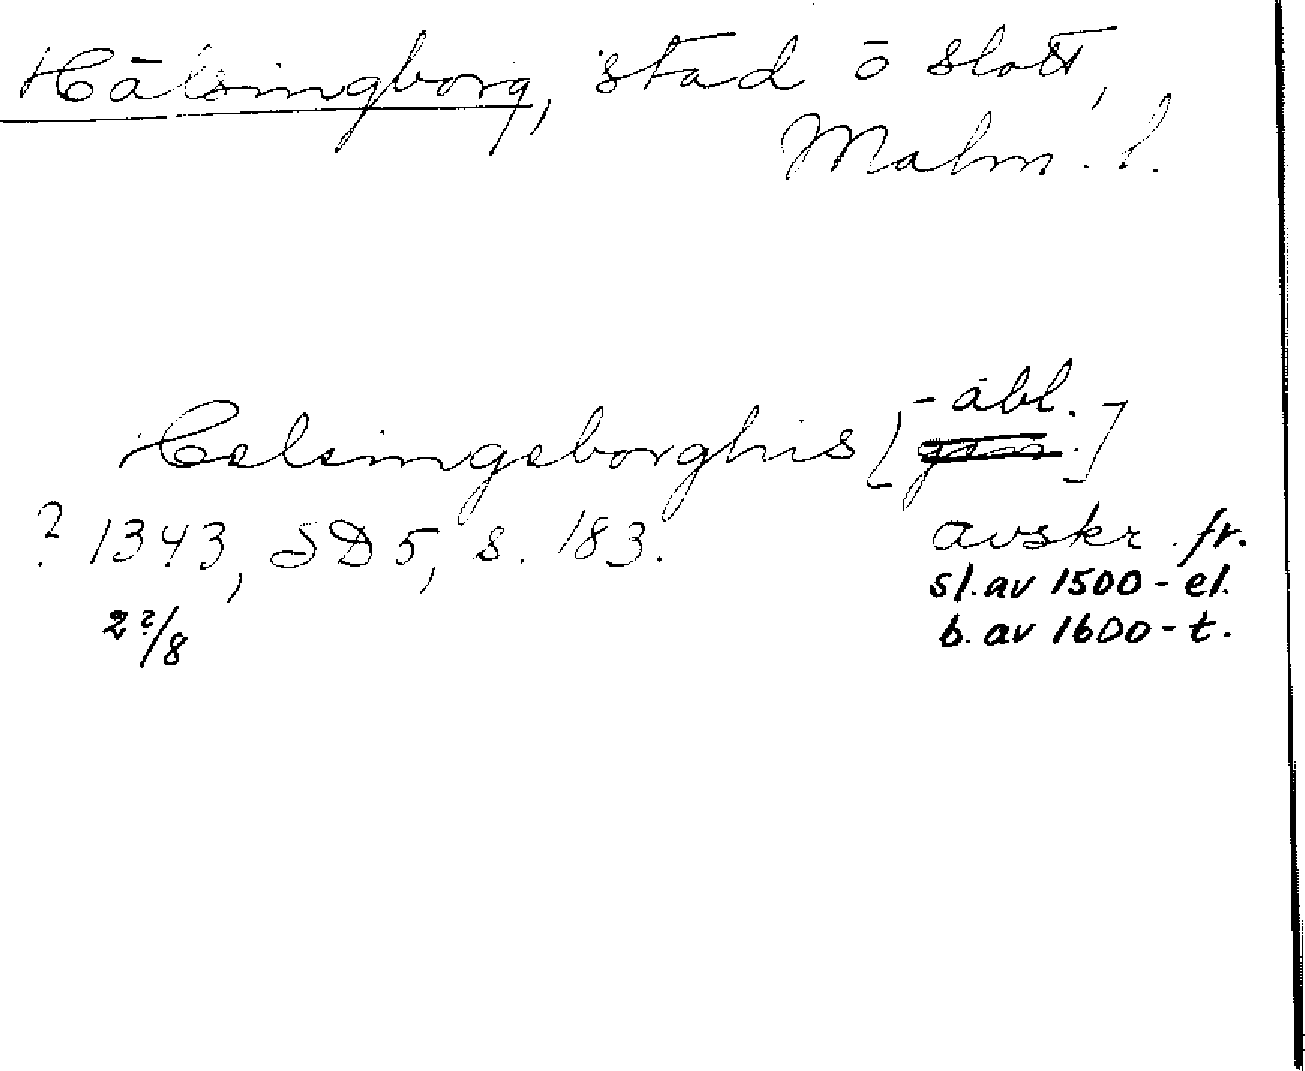 Hälsingborg, stad o slott,
Malm. l.
- abl.
Helsingeborghis [gen.]
? 1343, SD 5, s. 183.
avskr. fr.
sl. av 1500- el.
b. av 1600-t.
2?/8